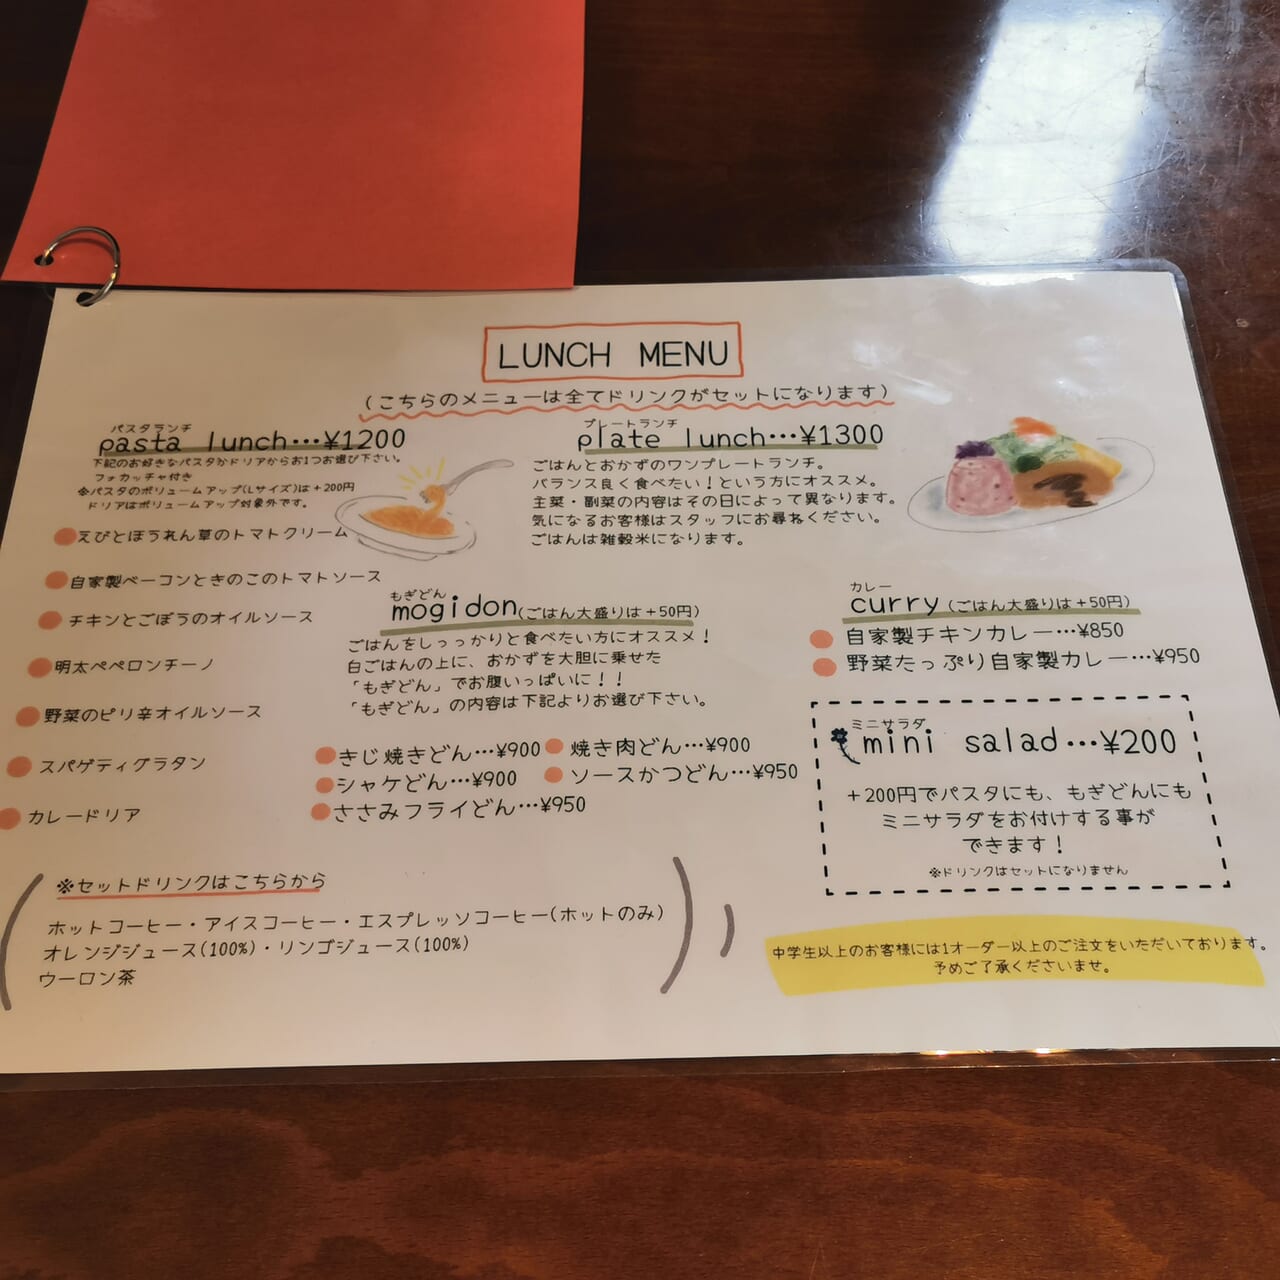 LUNCH MENU
(こちらのメニューは全てドリンクがセットになります)
パスタランチ
pasta lunch…¥1200
下記のお好きなパスタかドリアからお1つお選び下さい。
フォカッチャ付き
※パスタのボリュームアップ(Lサイズ)は+200円
ドリアはボリュームアップ対象外です。
えびとほうれん草のトマトクリーム
自家製ベーコンときのこのトマトソース
チキンとごぼうのオイルソース
明太ペペロンチーノ
野菜のピリ辛オイルソース
スパゲティグラタン
カレードリア
プレートランチ
plate lunch…¥1300
ごはんとおかずのワンプレートランチ。
バランス良く食べたい!という方にオススメ。
主菜・副菜の内容はその日によって異なります。
気になるお客様はスタッフにお尋ねください。
ごはんは雑穀米になります。
もぎどん
mogidon(ごはん大盛りは+50円)
ごはんをしっっかりと食べたい方にオススメ!
白ごはんの上に、おかずを大胆に乗せた
「もぎどん」でお腹いっぱいに!!
「もぎどん」の内容は下記よりお選び下さい。
きじ焼きどん…¥900 焼き肉どん…¥900
シャケどん…¥900 ソースかつどん…¥950
ささみフライどん…¥950
カレー
curry(ごはん大盛りは+50円)
自家製チキンカレー…¥850
野菜たっぷり自家製カレー…¥950
ミニサラダ
mini salad…¥200
+200円でパスタにも、もぎどんにも
ミニサラダをお付けする事が
できます!
※ドリンクはセットになりません
※セットドリンクはこちらから
ホットコーヒー・アイスコーヒー・エスプレッソコーヒー(ホットのみ)
オレンジジュース(100%)・リンゴジュース(100%)
ウーロン茶
中学生以上のお客様には1オーダー以上のご注文をいただいております。
予めご了承くださいませ。